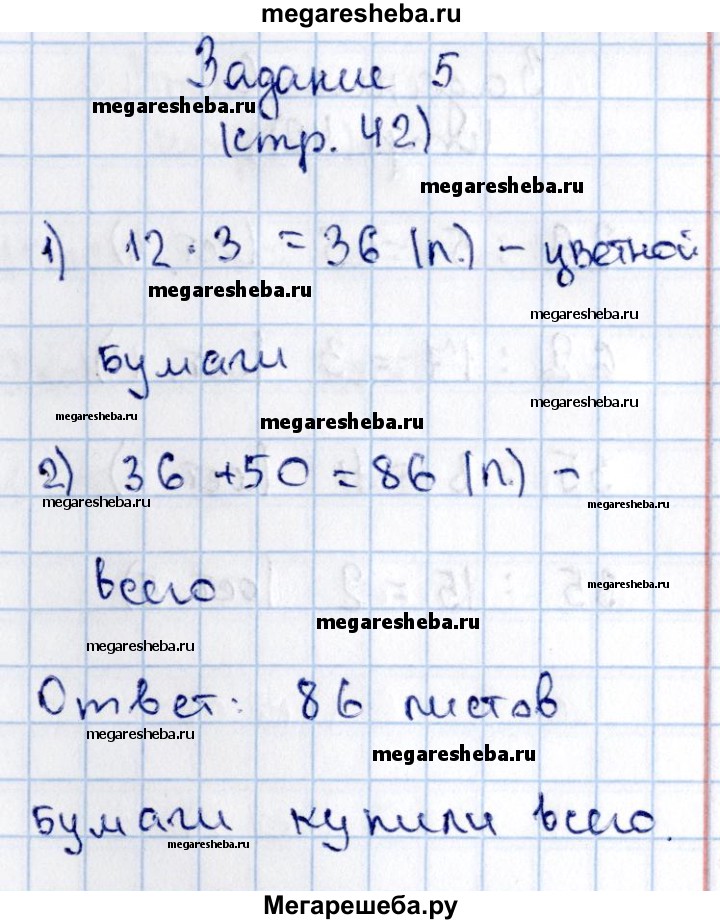 megaresheba.ru
Задание 5
megaresheba.ru
(стр. 42)
megaresheba.ru
1) 12 · 3 = 36 (л.) - цветной
megaresheba.ru
megaresheba.ru
бумаги
megaresheba.ru
megaresheba.ru
megaresheba.ru
2) 36 + 50 = 86 (л.) -
megaresheba.ru
megaresheba.ru
всего
megaresheba.ru
megaresheba.ru
megaresheba.ru
Ответ: 86 листов
megaresheba.ru
megaresheba.ru
бумаги купили всего.
megaresheba.ru
megaresheba.ru
Мегарешеба.ру